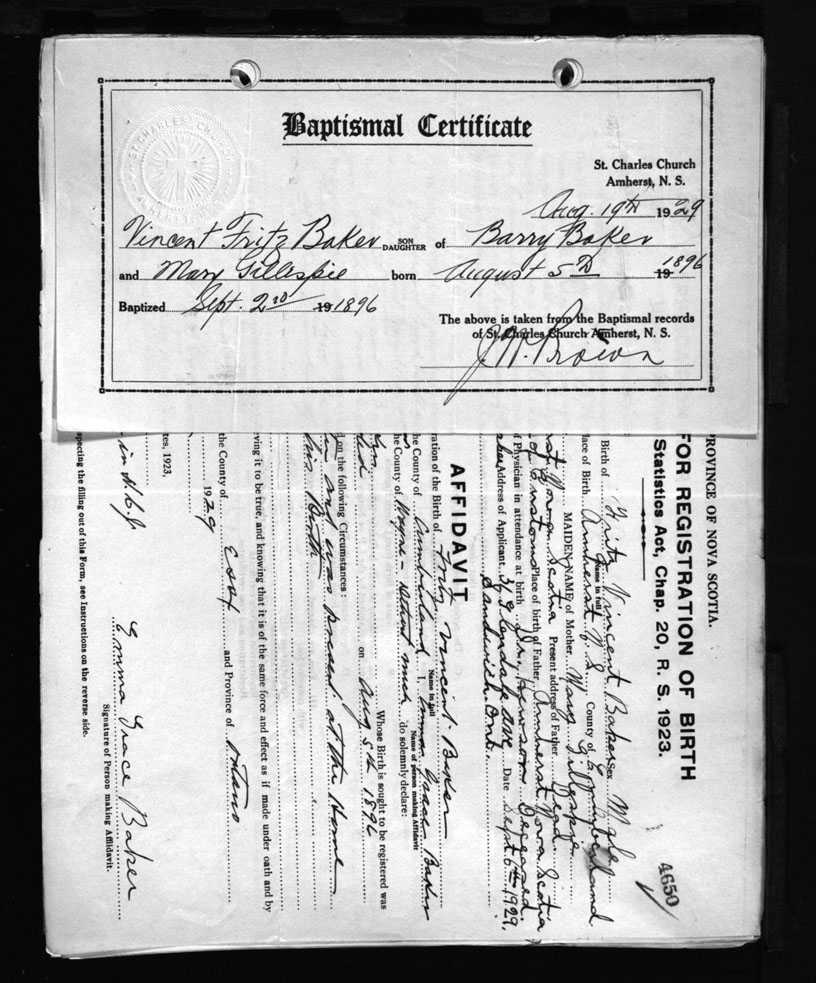 ST. CHARLES CHURCH
AMHERST, N.S.
Baptismal Certificate
St. Charles Church
Amherst, N. S.
Aug. 19th 1929
Vincent Fritz Baker SON DAUGHTER of Barry Baker
and Mary Gillespie born August 5th 19 1896
Baptized Sept. 2nd 19 1896
The above is taken from the Baptismal records
of St. Charles Church Amherst, N. S.
J. W. Brown
PROVINCE OF NOVA SCOTIA.
FOR REGISTRATION OF BIRTH
Statistics Act, Chap. 20, R. S. 1923.
4650
Birth of Fritz Vincent Baker Sex Male
Name in full
lace of Birth Amherst N.S. County of Cumberland
MAIDEN NAME of Mother Mary Gillespie
Nova Scotia Present address of Father Dead
of Customs Place of birth of Father Amherst Nova Scotia
f Physician in attendance at birth Dr. Hewson Deceased.
Address of Applicant Glendale ave Date Sept 6th 1929.
Sandwich, Ont.
AFFIDAVIT
ration of the Birth of Fritz Vincent Baker
Name in full
he County of Cumberland I, Emma Grace Baker
Name of person making Affidavit
he County of Wayne - Detroit Mich do solemnly declare:
Whose Birth is sought to be registered was
on Aug 5th 1896
d on the following Circumstances:
and was present at the Home
his Birth
eving it to be true, and knowing that it is of the same force and effect as if made under oath and by
the County of Essex and Province of Ontario
1929
tes, 1923,
Emma Grace Baker
Signature of Person making Affidavit.
specting the filling out of this Form, see Instructions on the reverse side.